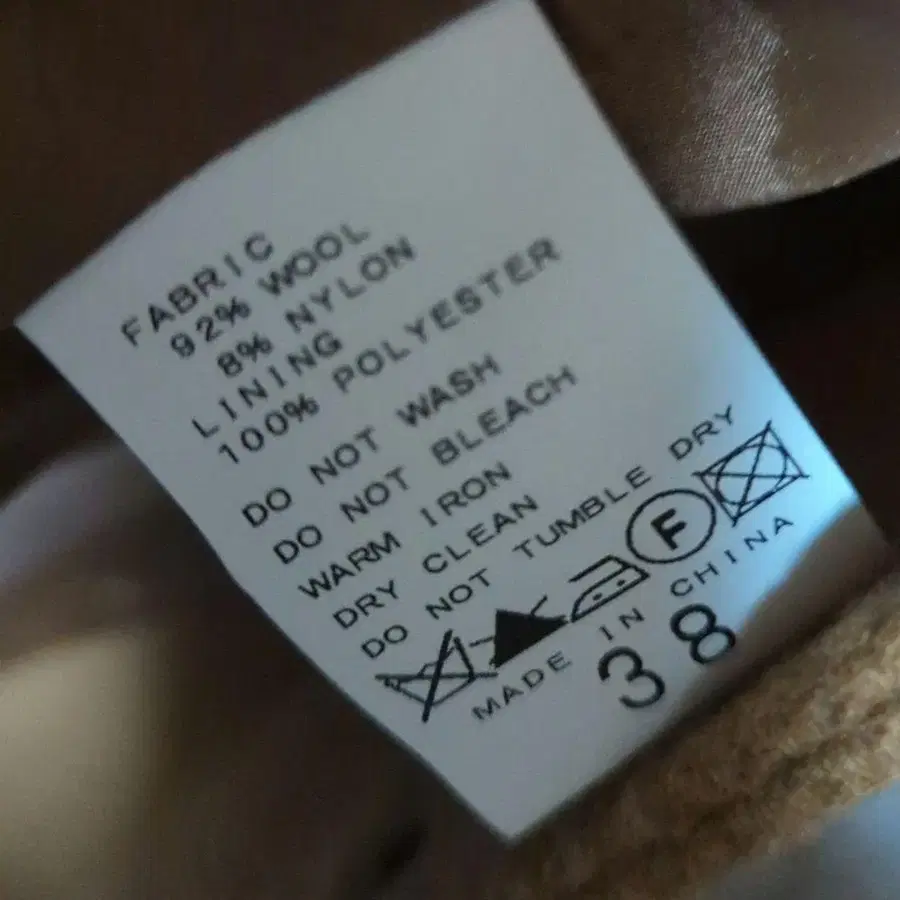 FABRIC
92% WOOL
8% NYLON
LINING
100% POLYESTER
DO NOT WASH
DO NOT BLEACH
WARM IRON
DRY CLEAN
DO NOT TUMBLE DRY
F
MADE IN CHINA
38